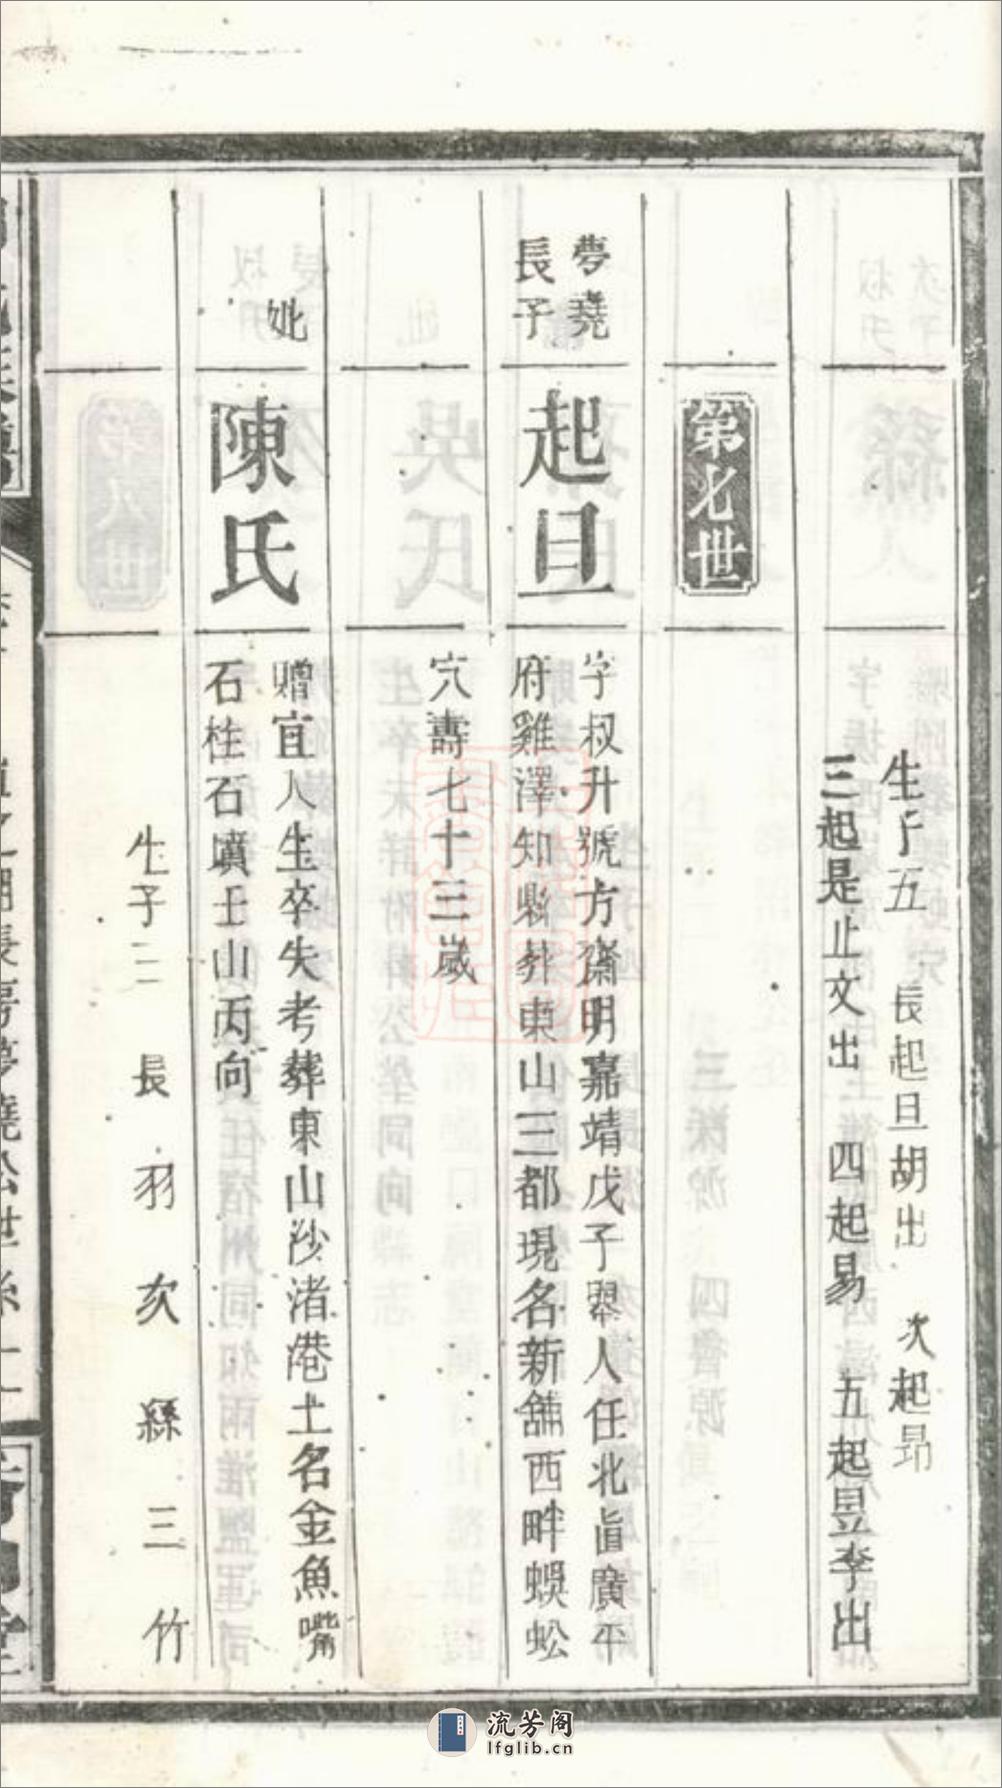 生子五 長起旦胡出 次起昂
三起是止文出 四起易 五起昱李出
第七世
夢堯
長子
起旦
字叔升號方齋明嘉靖戊子舉人任北直廣平
府雞澤知縣葬東山三都現名新舖西畔蜈蚣
穴壽七十三歲
妣
陳氏
贈宜人生卒失考葬東山沙渚港土名金魚嘴
石柱石墳壬山丙向
生子三 長羽 次繇 三竹
流芳阁
lfglib.cn